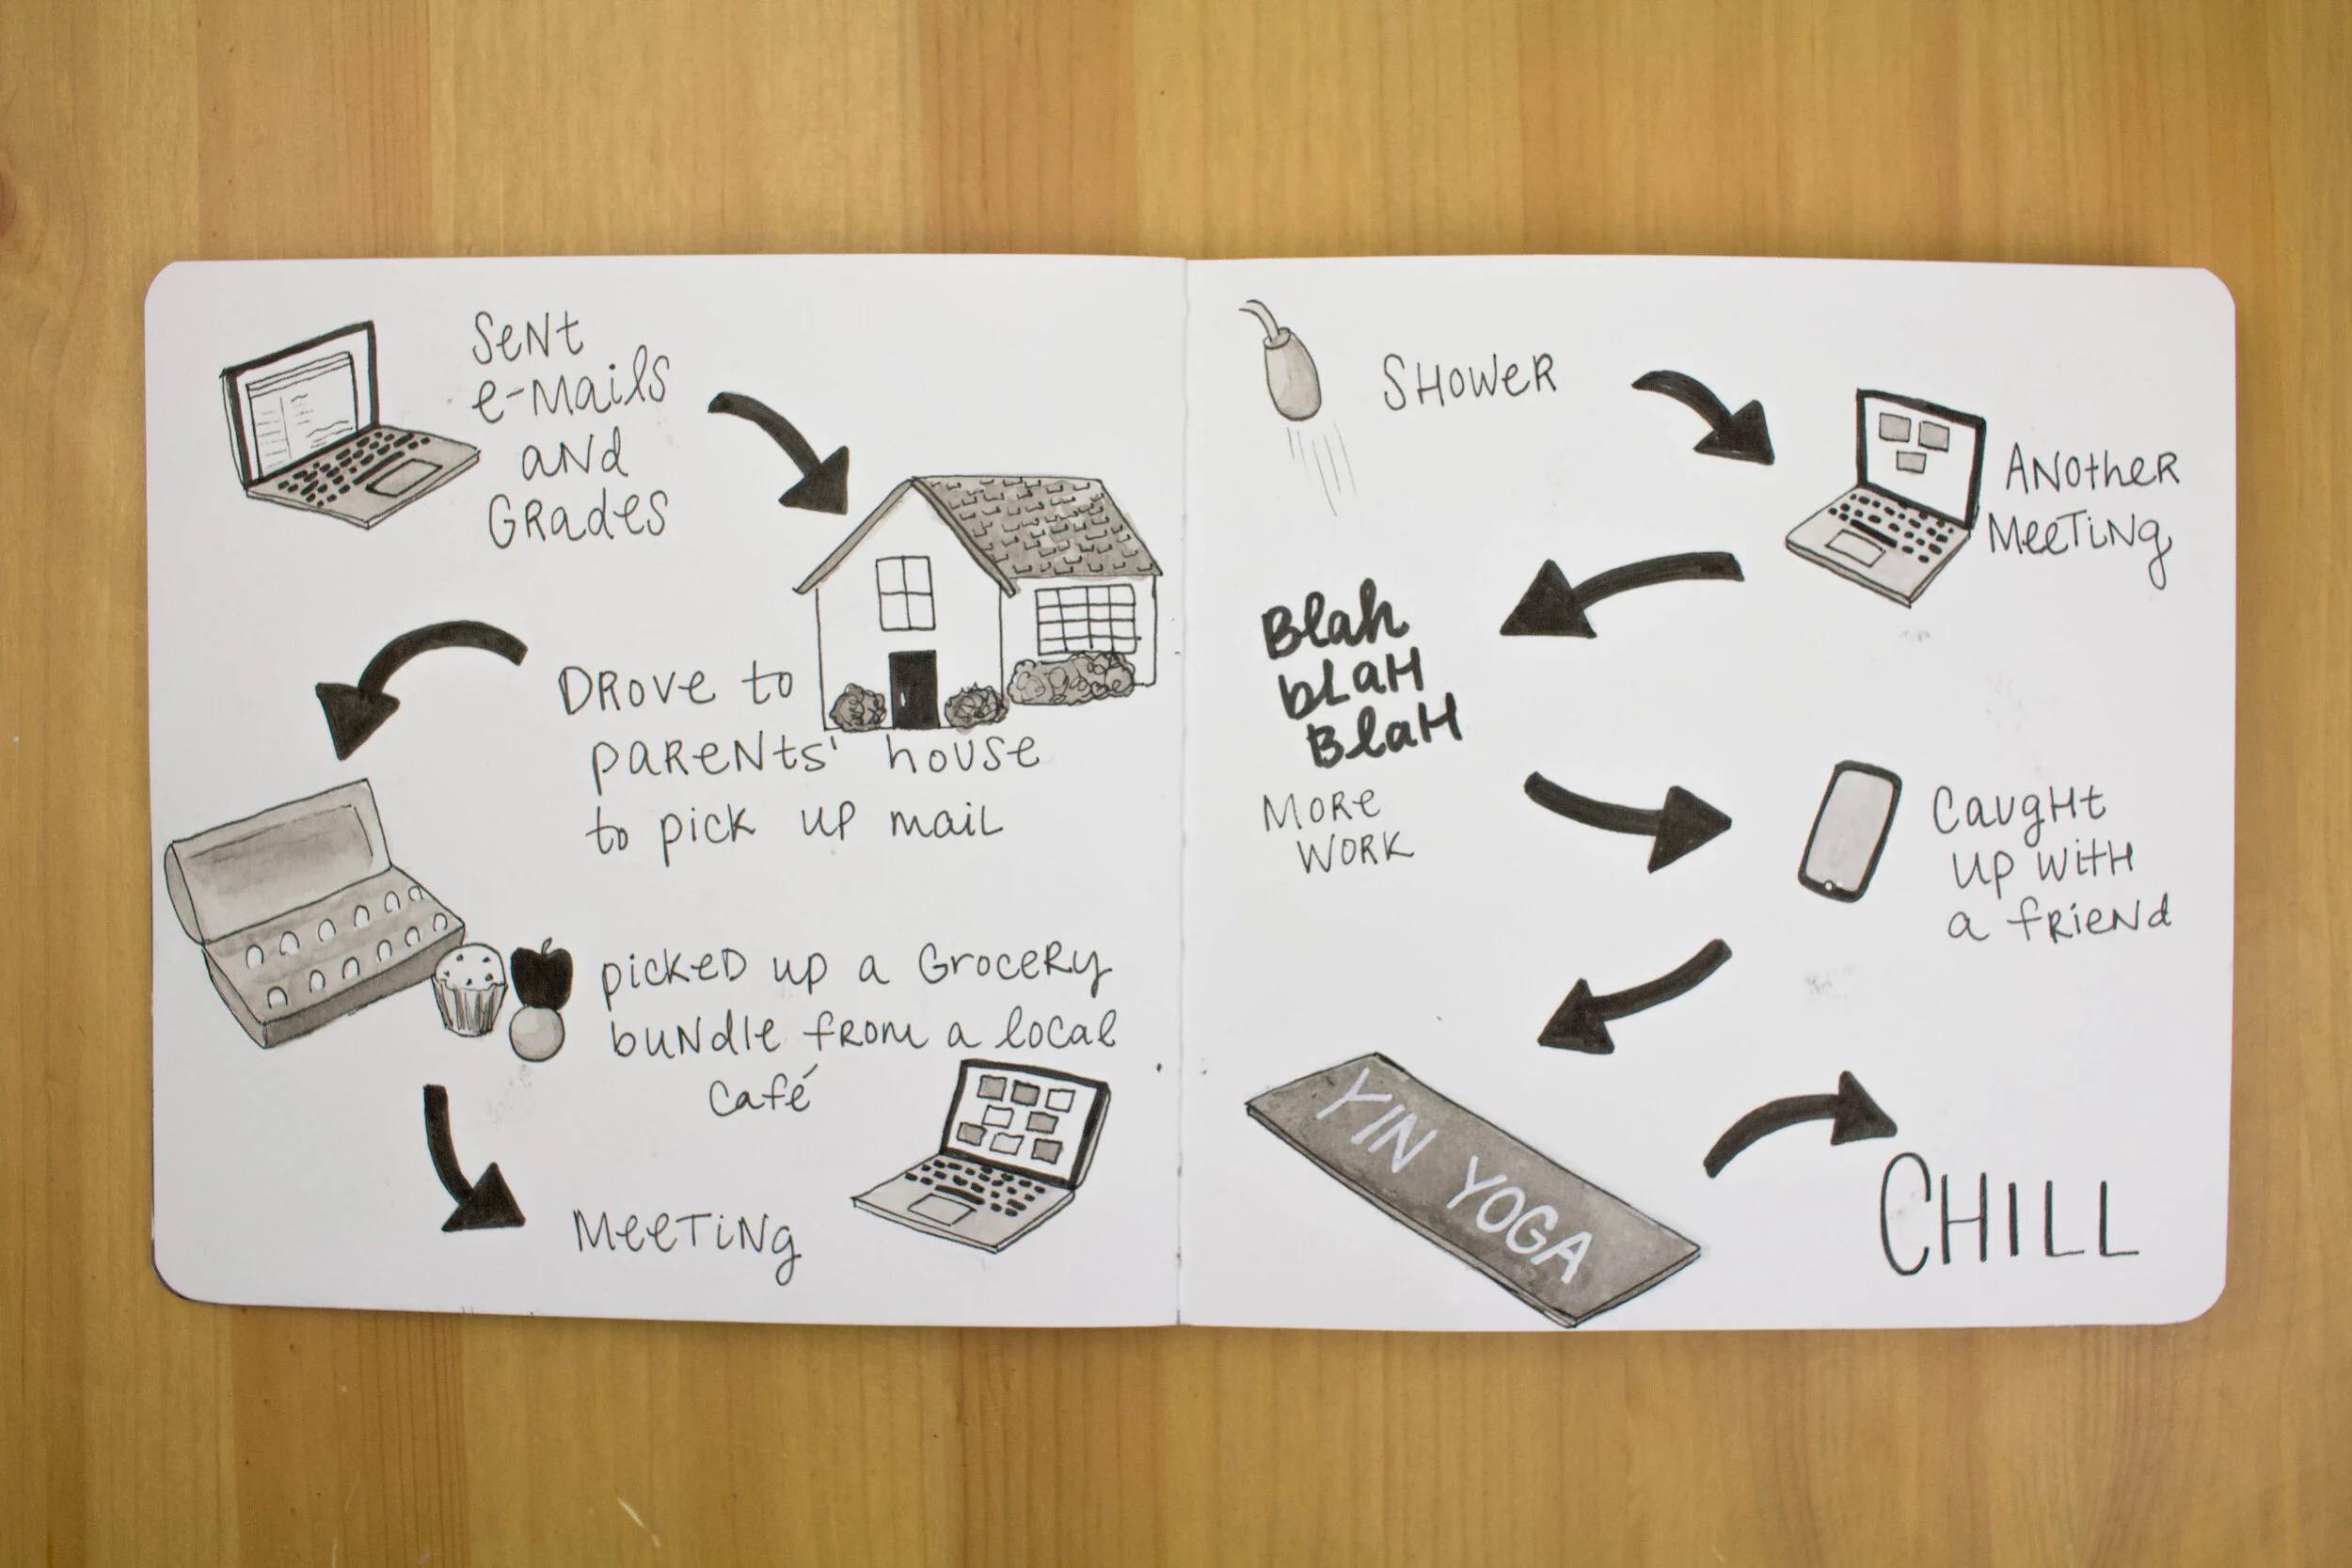 Sent
e-mails
and
Grades
Drove to
parents' house
to pick up mail
picked up a Grocery
bundle from a local
café
Meeting
Shower
Another
Meeting
Blah
blah
Blah
More
work
Caught
up with
a friend
YIN YOGA
CHILL